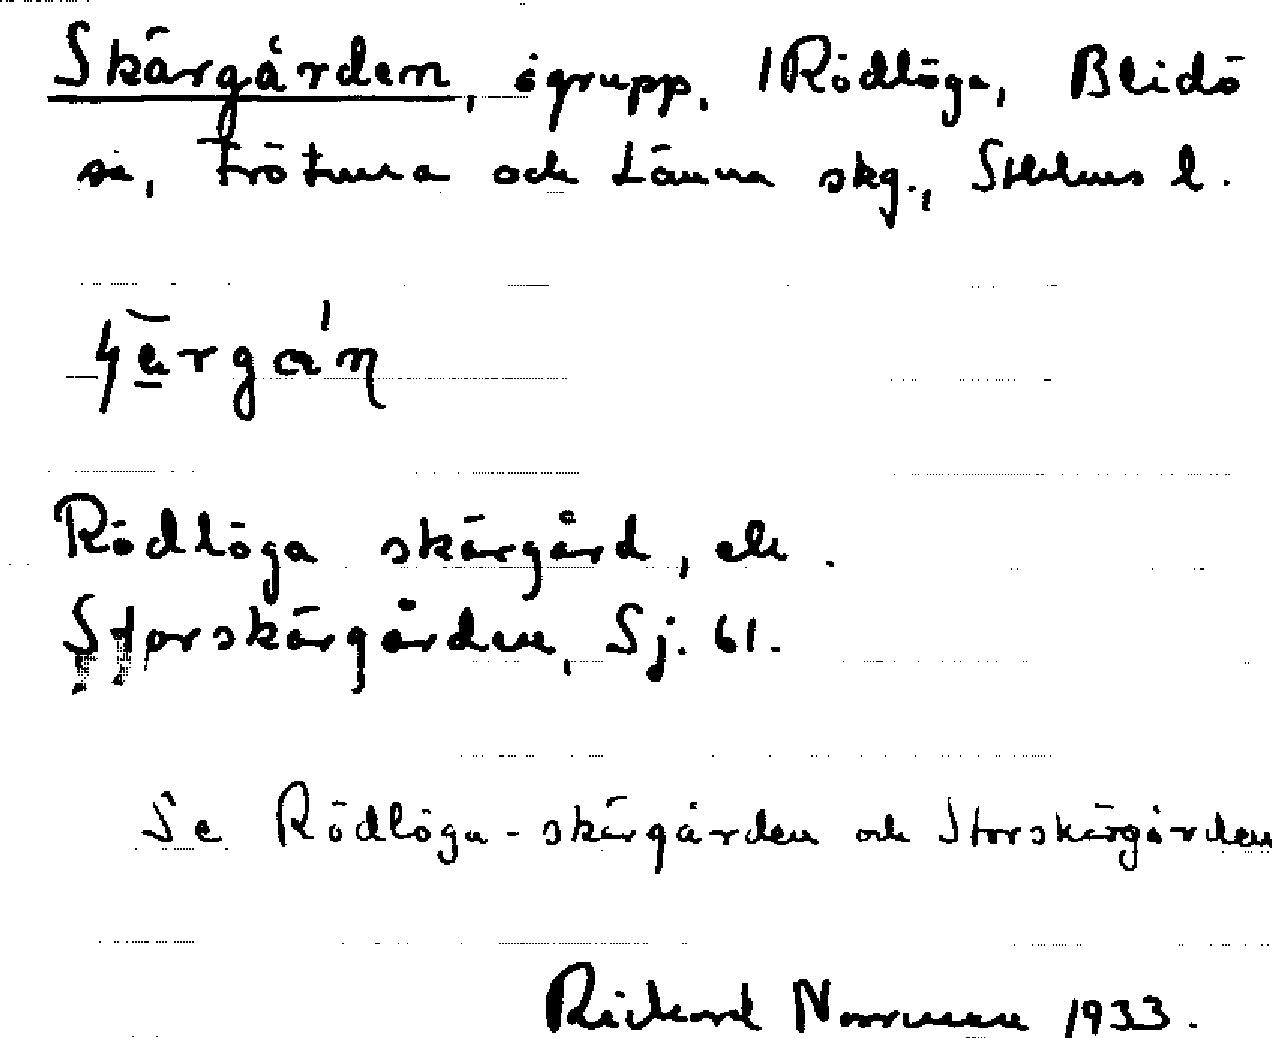 Skärgården, ögrupp, Rödlöga, Blidö
sn, Frötuna och Länna skg., Sthlms l.
Rödlöga skärgård, ek.
Storskärgården, Sj. 61.
Se Rödlöga-skärgården och Storskärgården
Rickard Norrman 1933.